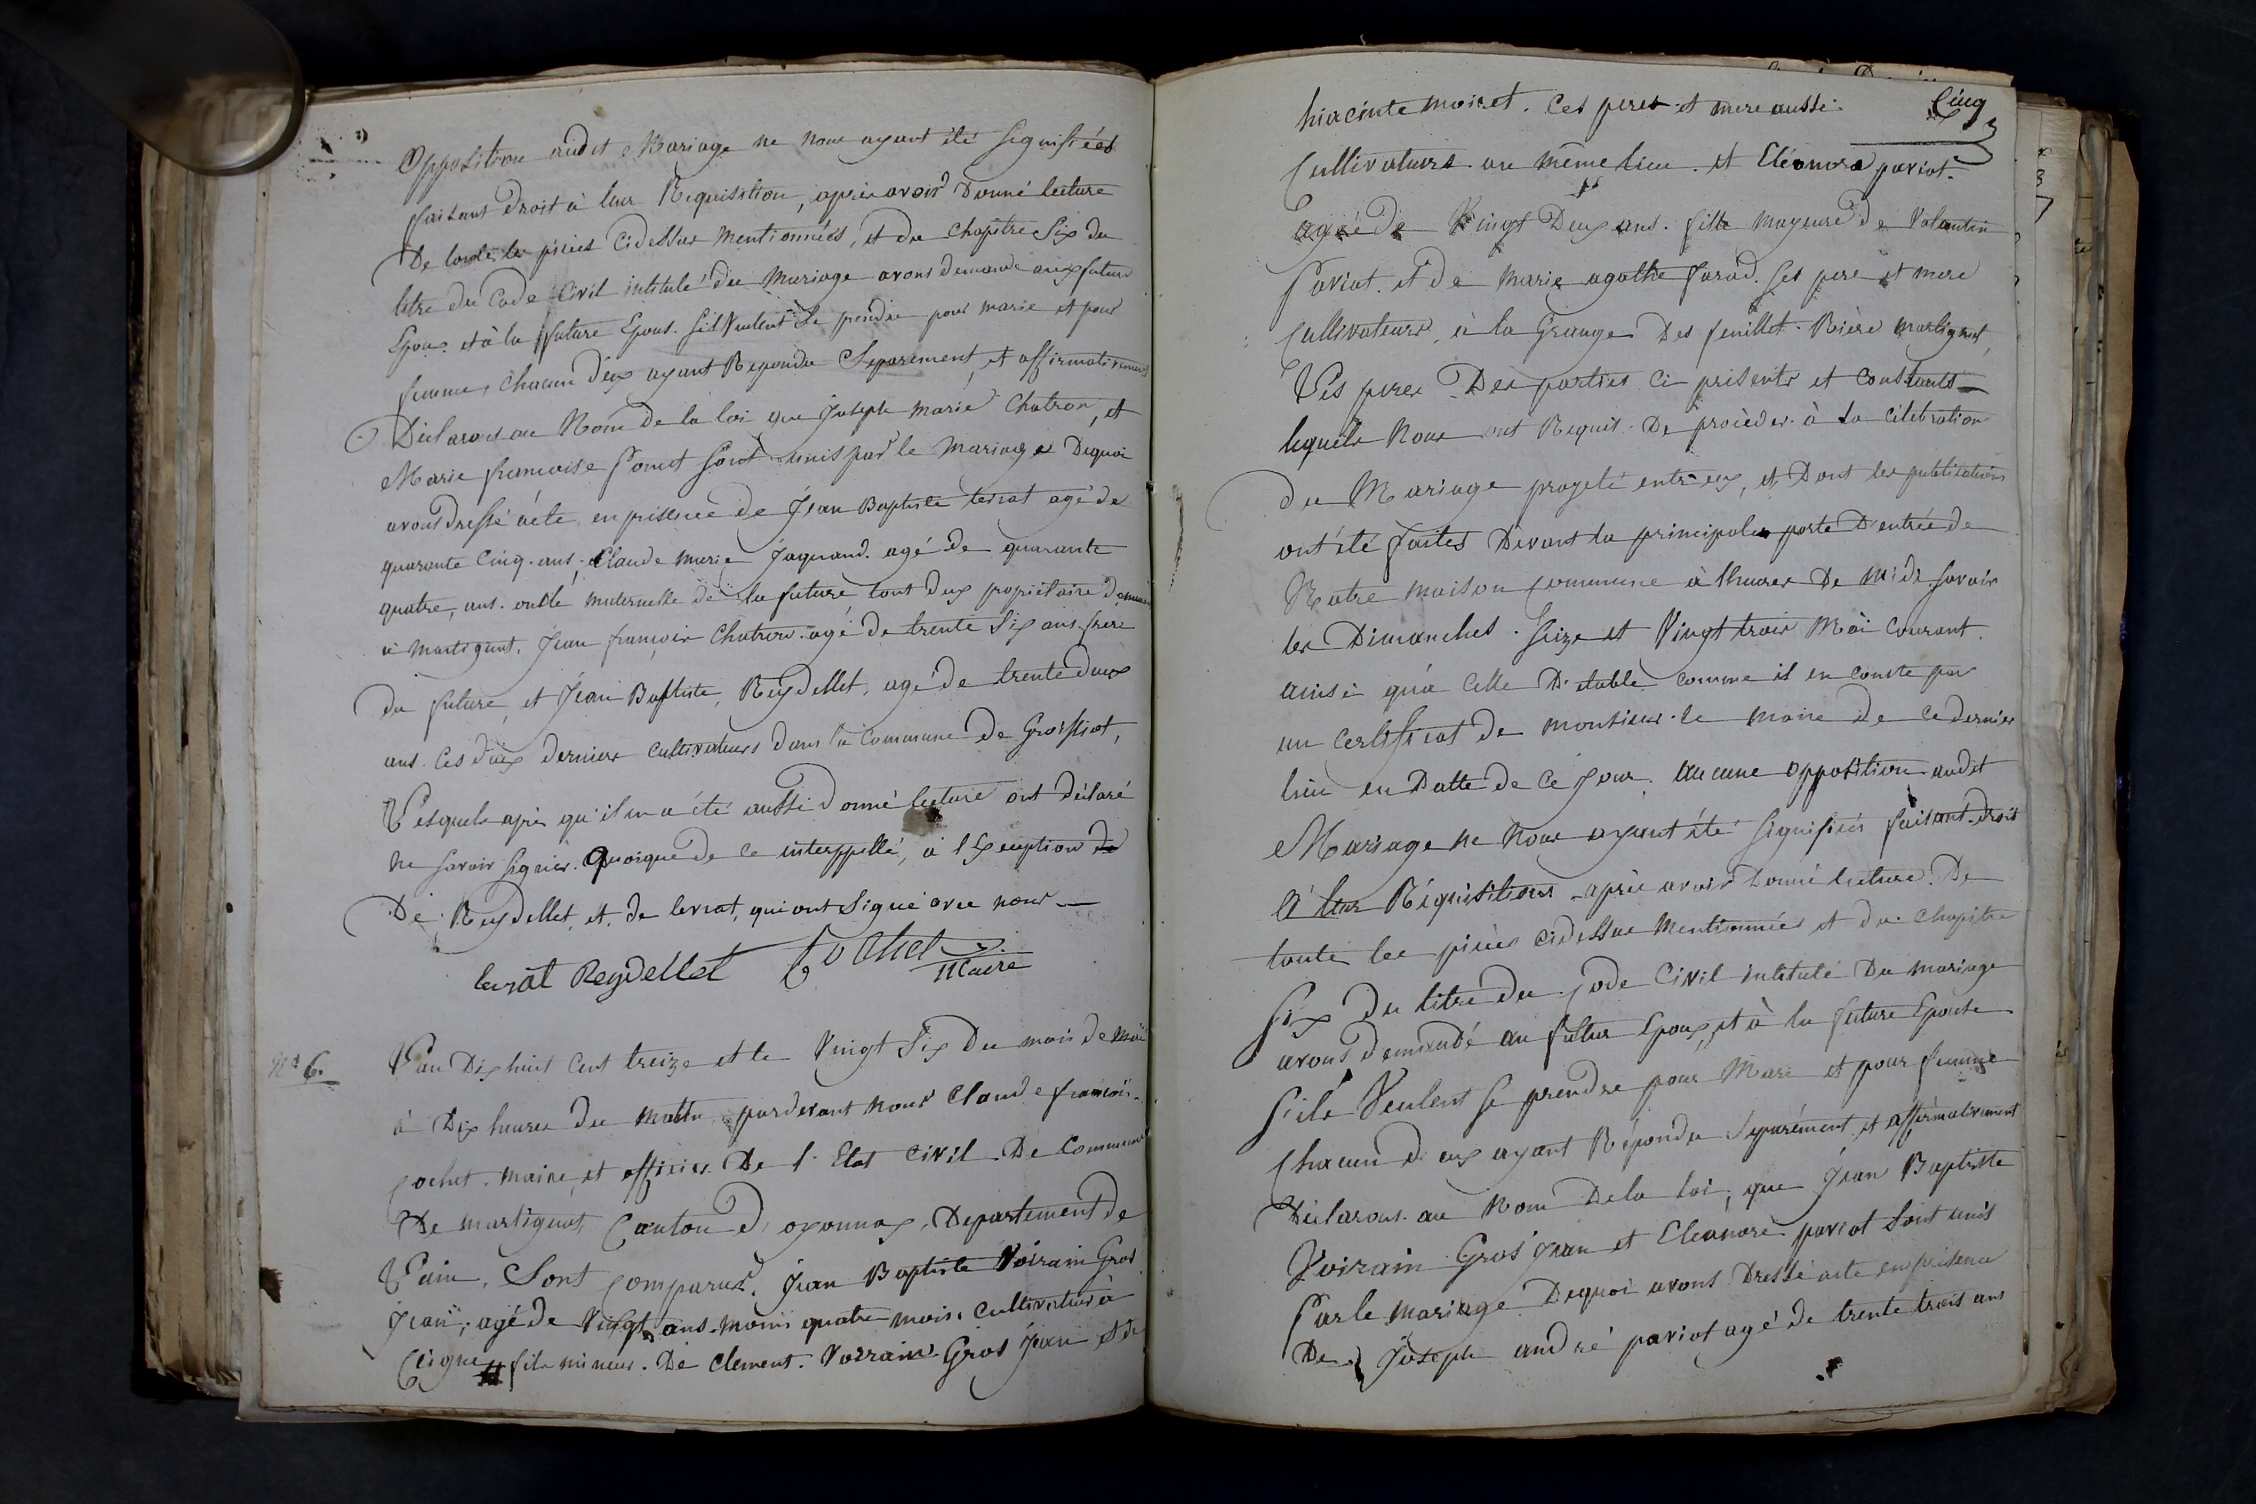 Opposition audit Mariage ne nous ayant été signifiées
faisant droit à leur Requisition, après avoir Donné lecture
De toute les pièces Cidessus mentionnées, et du Chapitre Six du
titre du Code Civil intitulé du Mariage avons demandé aux future
Epoux et à la future Epous. s'il veulent se prendre pour marie et pour
femme, chacun d'eux ayant Repondu Separement, et affirmativement
Déclarons au Nom De la loi que Joseph marie Chatron, et
Marie francoise Sonet sont unis par le mariage Dequoi
avons dressé acte, en présence de Jean Baptiste levrat agé de
quarante Cinq ans, Claude Marie Jaquand agé de quarante
quatre, ans. oncle maternelle de la future tout deux propiétaire
à Martignat, Jean françois Chatron agé de trente six ans frere
du future, et Jean Baptiste, Reydellet, agé de trente deux
ans. Ces deux derniers cultivateurs dans la Commune de Groissiat,
Lesquels apres qu'il en a été aussi Donné lecture ont déclaré
ne savoir signer. Quoique de ce interppellé, à l'Exeuption de
De Reydellet, et de levrat, qui ont signé avec nous
levrat Reydellet Cochet
Maire
No 6.
L'an Dix huit Cent treize et le Vingt Six Du mois de Mai
à Dix heures du Matin pardevant nous Claude françois
Cochet. maire, et officier De l'Etat Civil De Commune
De martignat, Canton d'oyonnax, Departement de
L'ain, Sont comparus, Jean Baptiste Voirain Gros
Jean, agé de Vingt ans moins quatre mois, Cultivateur à
fils mineur. De Clement. Voirain Gros Jean et de
Cinq
hiacinte moiret. Ces peres et mere aussi
Cultivateurs au même lieu. et Eléonore pariot
agée de Vingt Deux ans. fille mayeure de Valentin
Pariot. et De Marie agathe ses pere et mere
Cultivateurs, à la Grange Des feuillet. Rière Martignat,
Les peres Des parties ci présents et constants
lequels Nous ont Requis De procèder à la célébration
du Mariage projeté entre eux, et Dont les publications
ont été faites Devant la principale porte D'entrée de
Notre maison commune à l'heures De midi savoir
les Dimanches Seize et Vingt trois Mai Courant.
ainsi qu'a Celle D'etable comme il en conste par
un Certificat de monsieur le maire de ce dernier
lieu en Datte de ce jour. aucune Opposition audit
Mariage ne Nous ayant été signifiées faisant droit
à leur Réquisitions après avoir Donné lecture De
toute les pièces cidessus mentionnées et du Chapitre
Six Du titre du Code Civil intitulé Du mariage
avons demandé au futur Epoux, et à la future Epouse
s'ils Veulent se prendre pour Mari et pour femme
Chacun d'eux ayant Répondu Separément et affirmativement
Déclarons au Nom Dela loi, que Jean Baptiste
Voirain Gros Jean et Eleonore pariot sont unis
Par le mariage Dequoi avons Dressé acte en présence
De Joseph andré pariot agé de trente trois ans